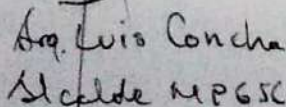 Arq. Luis Concha
Alcalde MPGSC